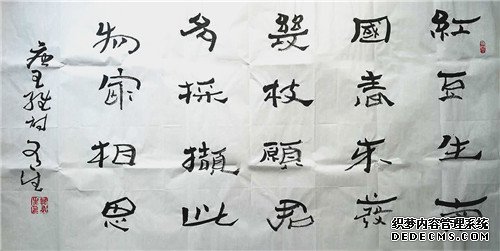 紅豆生南
國春来發
幾枝願君
多採擷此
物最相思
唐王維詩
织梦内容管理系统
DEDECMS.COM